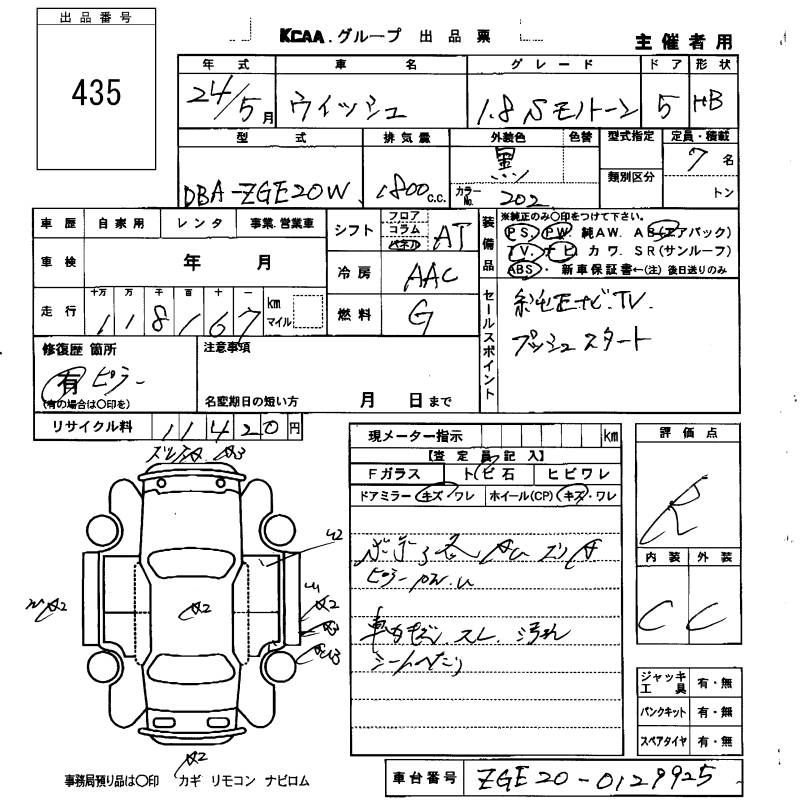 出品番号
435
KCAA.グループ 出品票
主催者用
年式 車名 グレード ドア 形状
24/5月 ウィッシュ 1.8Sモノトーン 5 HB
型式 排気量 外装色 色替 型式指定 定員・積載
DBA-ZGE20W 1800c.c. 黒 7名
カラーNo. 202 類別区分 トン
車歴 自家用 レンタ 事業.営業車
車検 年 月
走行 十万 万 千 百 十 一 km マイル
118167
シフト フロア コラム パネル AT
冷房 AAC
燃料 G
装備品
※純正のみ〇印をつけて下さい。
P.S. P.W. 純AW. AB(エアバック)
T.V. ナビ. カワ. SR(サンルーフ)
ABS・新車保証書←(注) 後日送りのみ
セールスポイント
純正ナビ.TV.
プッシュスタート
修復歴 箇所
有 ピラー
(有の場合は〇印を)
注意事項
名変期日の短い方 月 日まで
リサイクル料 11420円
現メーター指示 km
【査定員記入】
Fガラス トビ石 ヒビワレ
ドアミラー キズ・ワレ ホイール(CP) キズ・ワレ
評価点
R
内装 外装
C C
A2
A2
A2
ピラー
スレ. 汚れ
ジャッキ工具 有・無
パンクキット 有・無
スペアタイヤ 有・無
事務局預り品は〇印 カギ リモコン ナビロム
車台番号 ZGE20-0129925